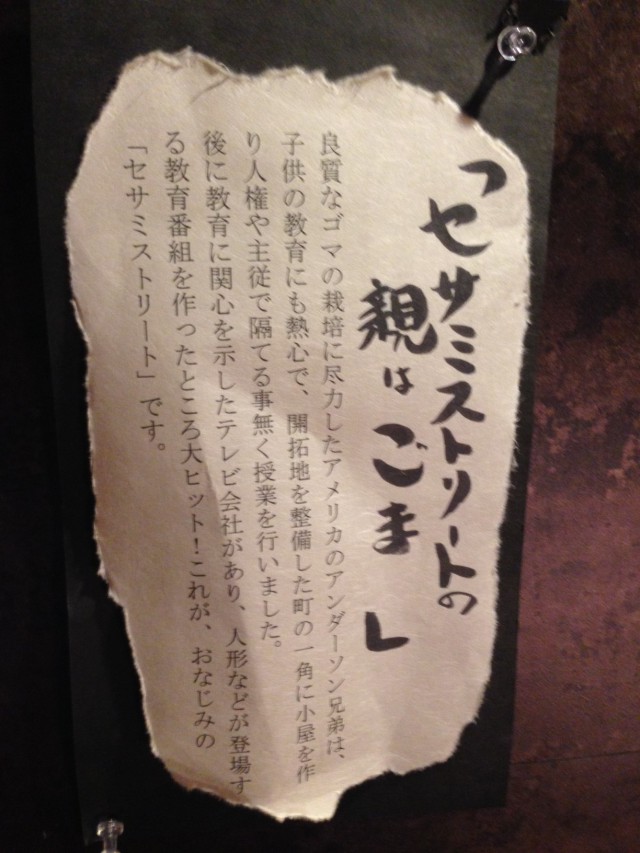 「セサミストリートの
親はごま」
良質なゴマの栽培に尽力したアメリカのアンダーソン兄弟は、
子供の教育にも熱心で、開拓地を整備した町の一角に小屋を作
り人権や主従で隔てる事無く授業を行いました。
後に教育に関心を示したテレビ会社があり、人形などが登場す
る教育番組を作ったところ大ヒット！これが、おなじみの
「セサミストリート」です。